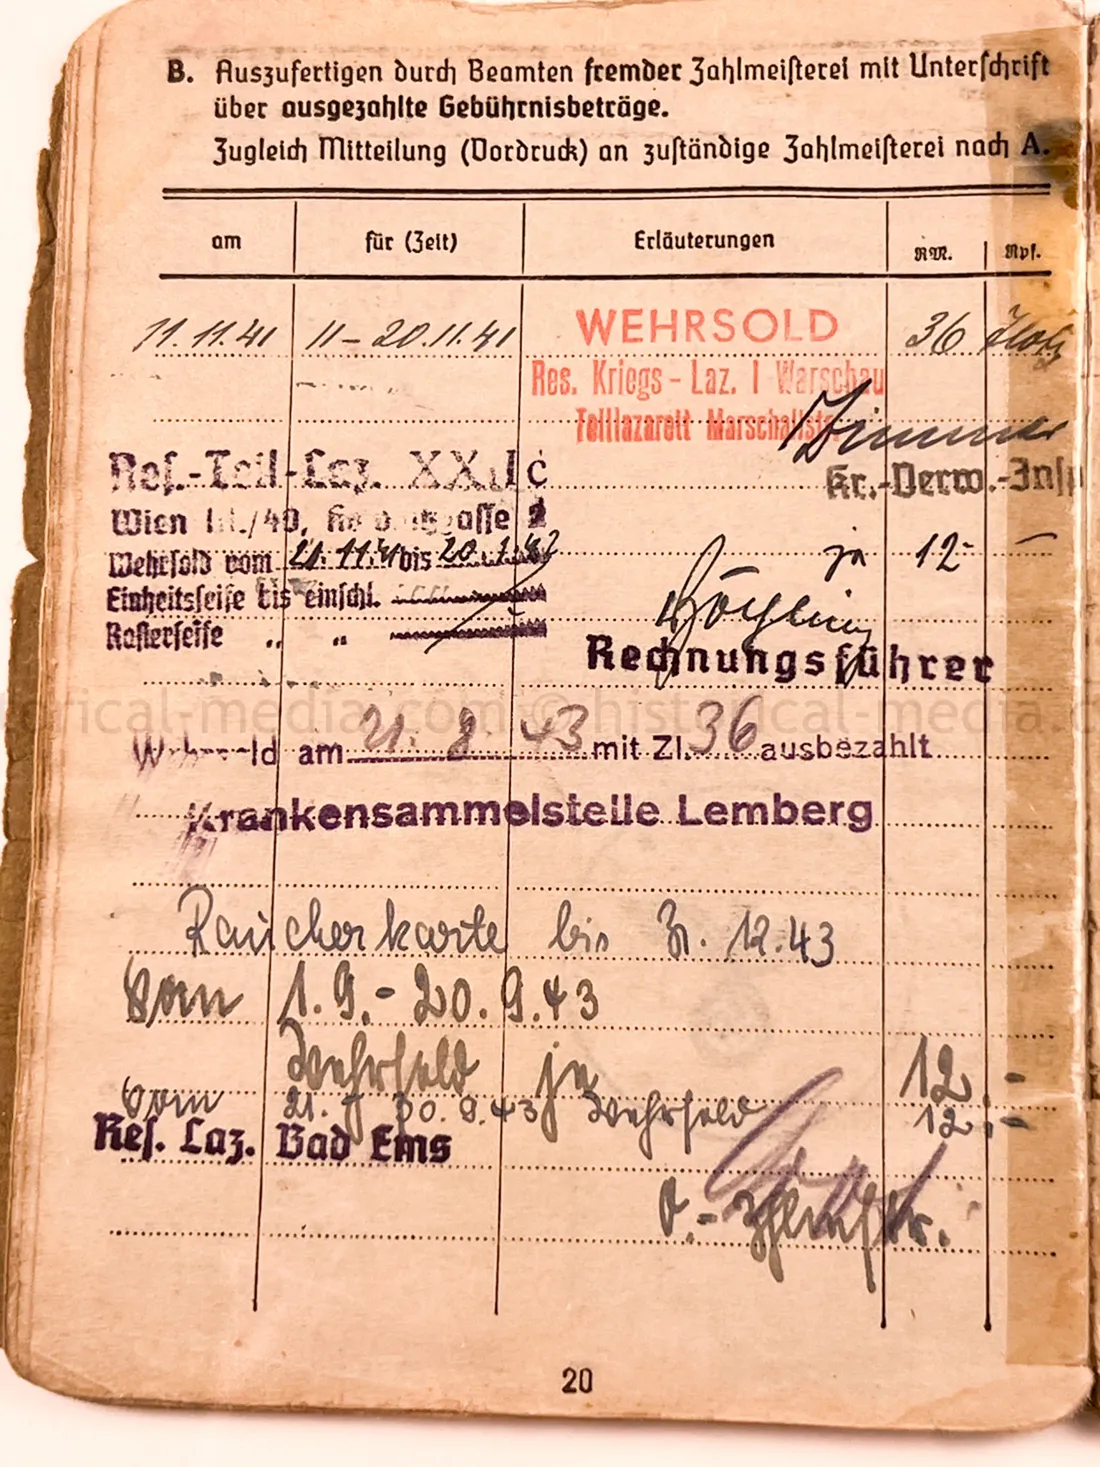 B. Auszufertigen durch Beamten fremder Zahlmeisterei mit Unterschrift
über ausgezahlte Gebührnisbeträge.
Zugleich Mitteilung (Vordruck) an zuständige Zahlmeisterei nach A.
am für (Zeit) Erläuterungen RM. Rpf.
11.11.41 11–20.11.41 WEHRSOLD 36
Res. Kriegs-Laz. I Warschau
Teillazarett Marschallstr.
Res.-Teil-Laz. XX
Kr.-Verw.-Insp
Wien /40, gasse 2
Wehrsold vom 21.11.41 bis 20.1.42 je 12.- –
Einheitsseife bis einschl.
Rasierseife " "
Rechnungsführer
Wehrsold am 21. 8 43 mit Zl. 36 ausbezahlt
historical-media.com © historical-media.com
Krankensammelstelle Lemberg
Raucherkarte bis 31. 12.43
Vom 1.9.- 20.9.43
Wehrsold je 12.-
vom 21. 30.9.43 Wehrsold 12.-
Res. Laz. Bad Ems
20